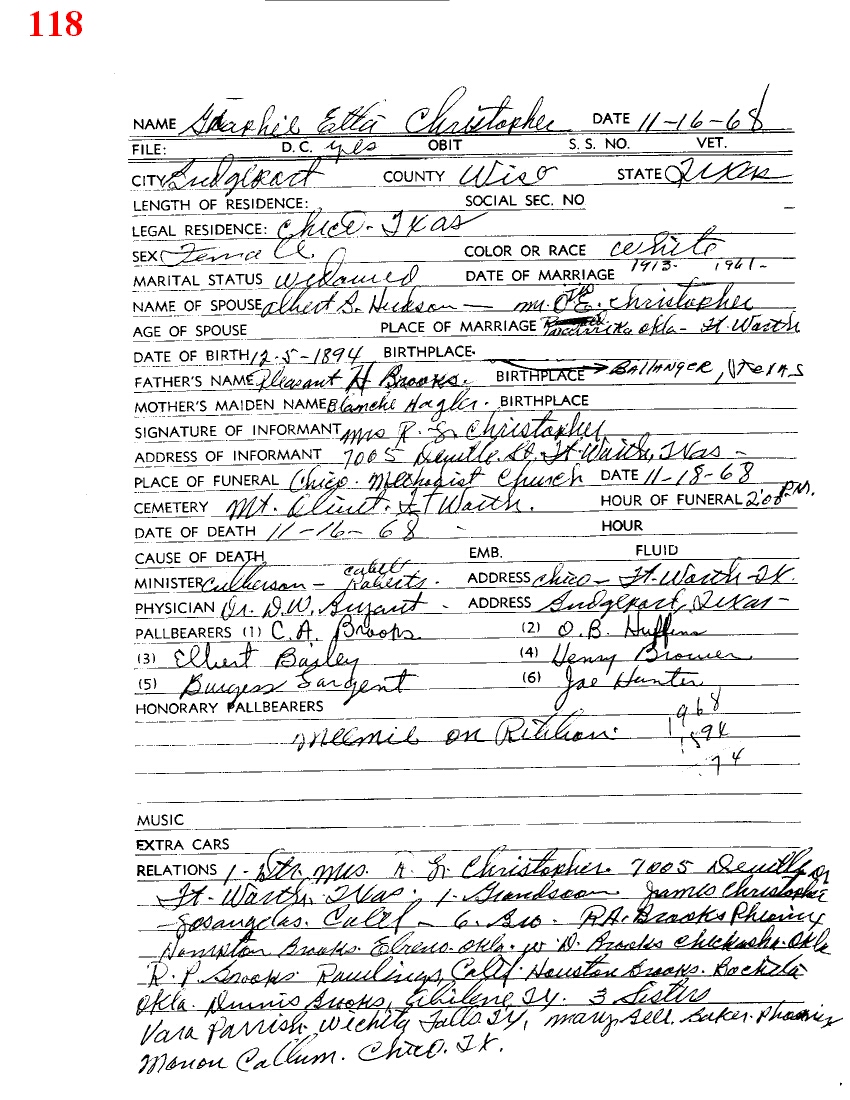 118
NAME Etta Christopher DATE 11-16-68
FILE: D.C. yes OBIT S. S. NO. VET.
CITY Bridgeport COUNTY Wise STATE Texas
LENGTH OF RESIDENCE: SOCIAL SEC. NO
LEGAL RESIDENCE: Chico - Texas
SEX Female COLOR OR RACE white
MARITAL STATUS widowed DATE OF MARRIAGE 1913- 1961-
NAME OF SPOUSE Albert S. - Mr. O.E. Christopher
AGE OF SPOUSE PLACE OF MARRIAGE Okla - Ft. Worth
DATE OF BIRTH 12-5-1894 BIRTHPLACE
FATHER'S NAME Pleasant H Brooks. BIRTHPLACE BALLANGER, TEXAS
MOTHER'S MAIDEN NAME Blanche Hagler. BIRTHPLACE
SIGNATURE OF INFORMANT Mrs R. L. Christopher
ADDRESS OF INFORMANT 7005 Deville St. Ft Worth, Texas -
PLACE OF FUNERAL Chico - Methodist Church DATE 11-18-68
CEMETERY Mt. Olivet. Ft Worth. HOUR OF FUNERAL 2:00 P.M.
DATE OF DEATH 11-16-68 - HOUR
CAUSE OF DEATH EMB. FLUID
MINISTER Culberson - Roberts. ADDRESS Chico - Ft. Worth - TX.
PHYSICIAN Dr. D.W. Bryant - ADDRESS Bridgeport, Texas -
PALLBEARERS (1) C.A. Brooks (2) O.B. Huffins
(3) Elbert Bagley (4) Henry Brower
(5) Burgess Sargent (6) Joe Hunter
HONORARY PALLBEARERS 1968
Meemie on Ribbon. 1894
74
MUSIC
EXTRA CARS
RELATIONS 1- Dtr. Mrs. R. L. Christopher. 7005 Deville Dr
Ft. Worth, Texas. 1. Grandson James Christopher
Los Angeles. Calif - 6. Bro. R.A. Brooks Phoenix
Hampton Brooks. Elreno. Okla. W. D. Brooks Chickasha. Okla
R. P. Brooks Rawlings, Calif. Houston Brooks.
Okla. Dennis Brooks, Abilene TX. 3 Sisters
Vara Parrish. Wichita Falls TX, Mary Bell. Baker. Phoenix
Callum. Chico. TX.